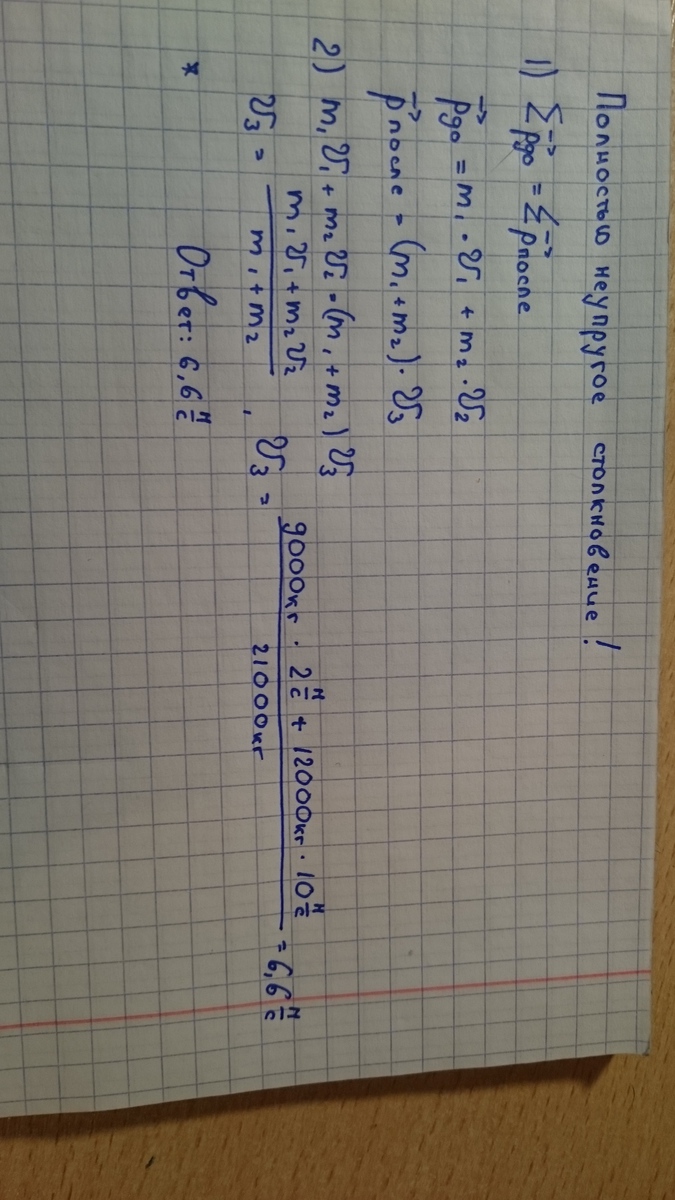 Полностью неупругое столкновение!
1) ∑p⃗до = ∑p⃗после
p⃗до = m₁ · v₁ + m₂ · v₂
p⃗после = (m₁ + m₂) · v₃
2) m₁v₁ + m₂v₂ = (m₁ + m₂) v₃
v₃ = (m₁v₁ + m₂v₂)/(m₁ + m₂), v₃ = (9000кг · 2 м/с + 12000кг · 10 м/с)/21000кг = 6,6 м/с
* Ответ: 6,6 м/с